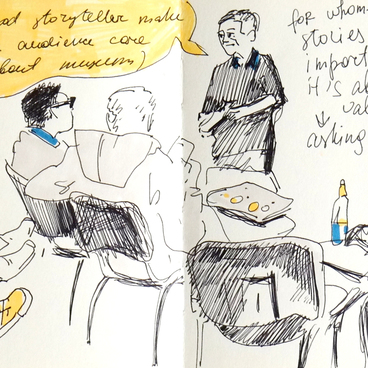 storyteller make
audience care
about museum)
for whom
stories
import
It's al
val
↓
asking